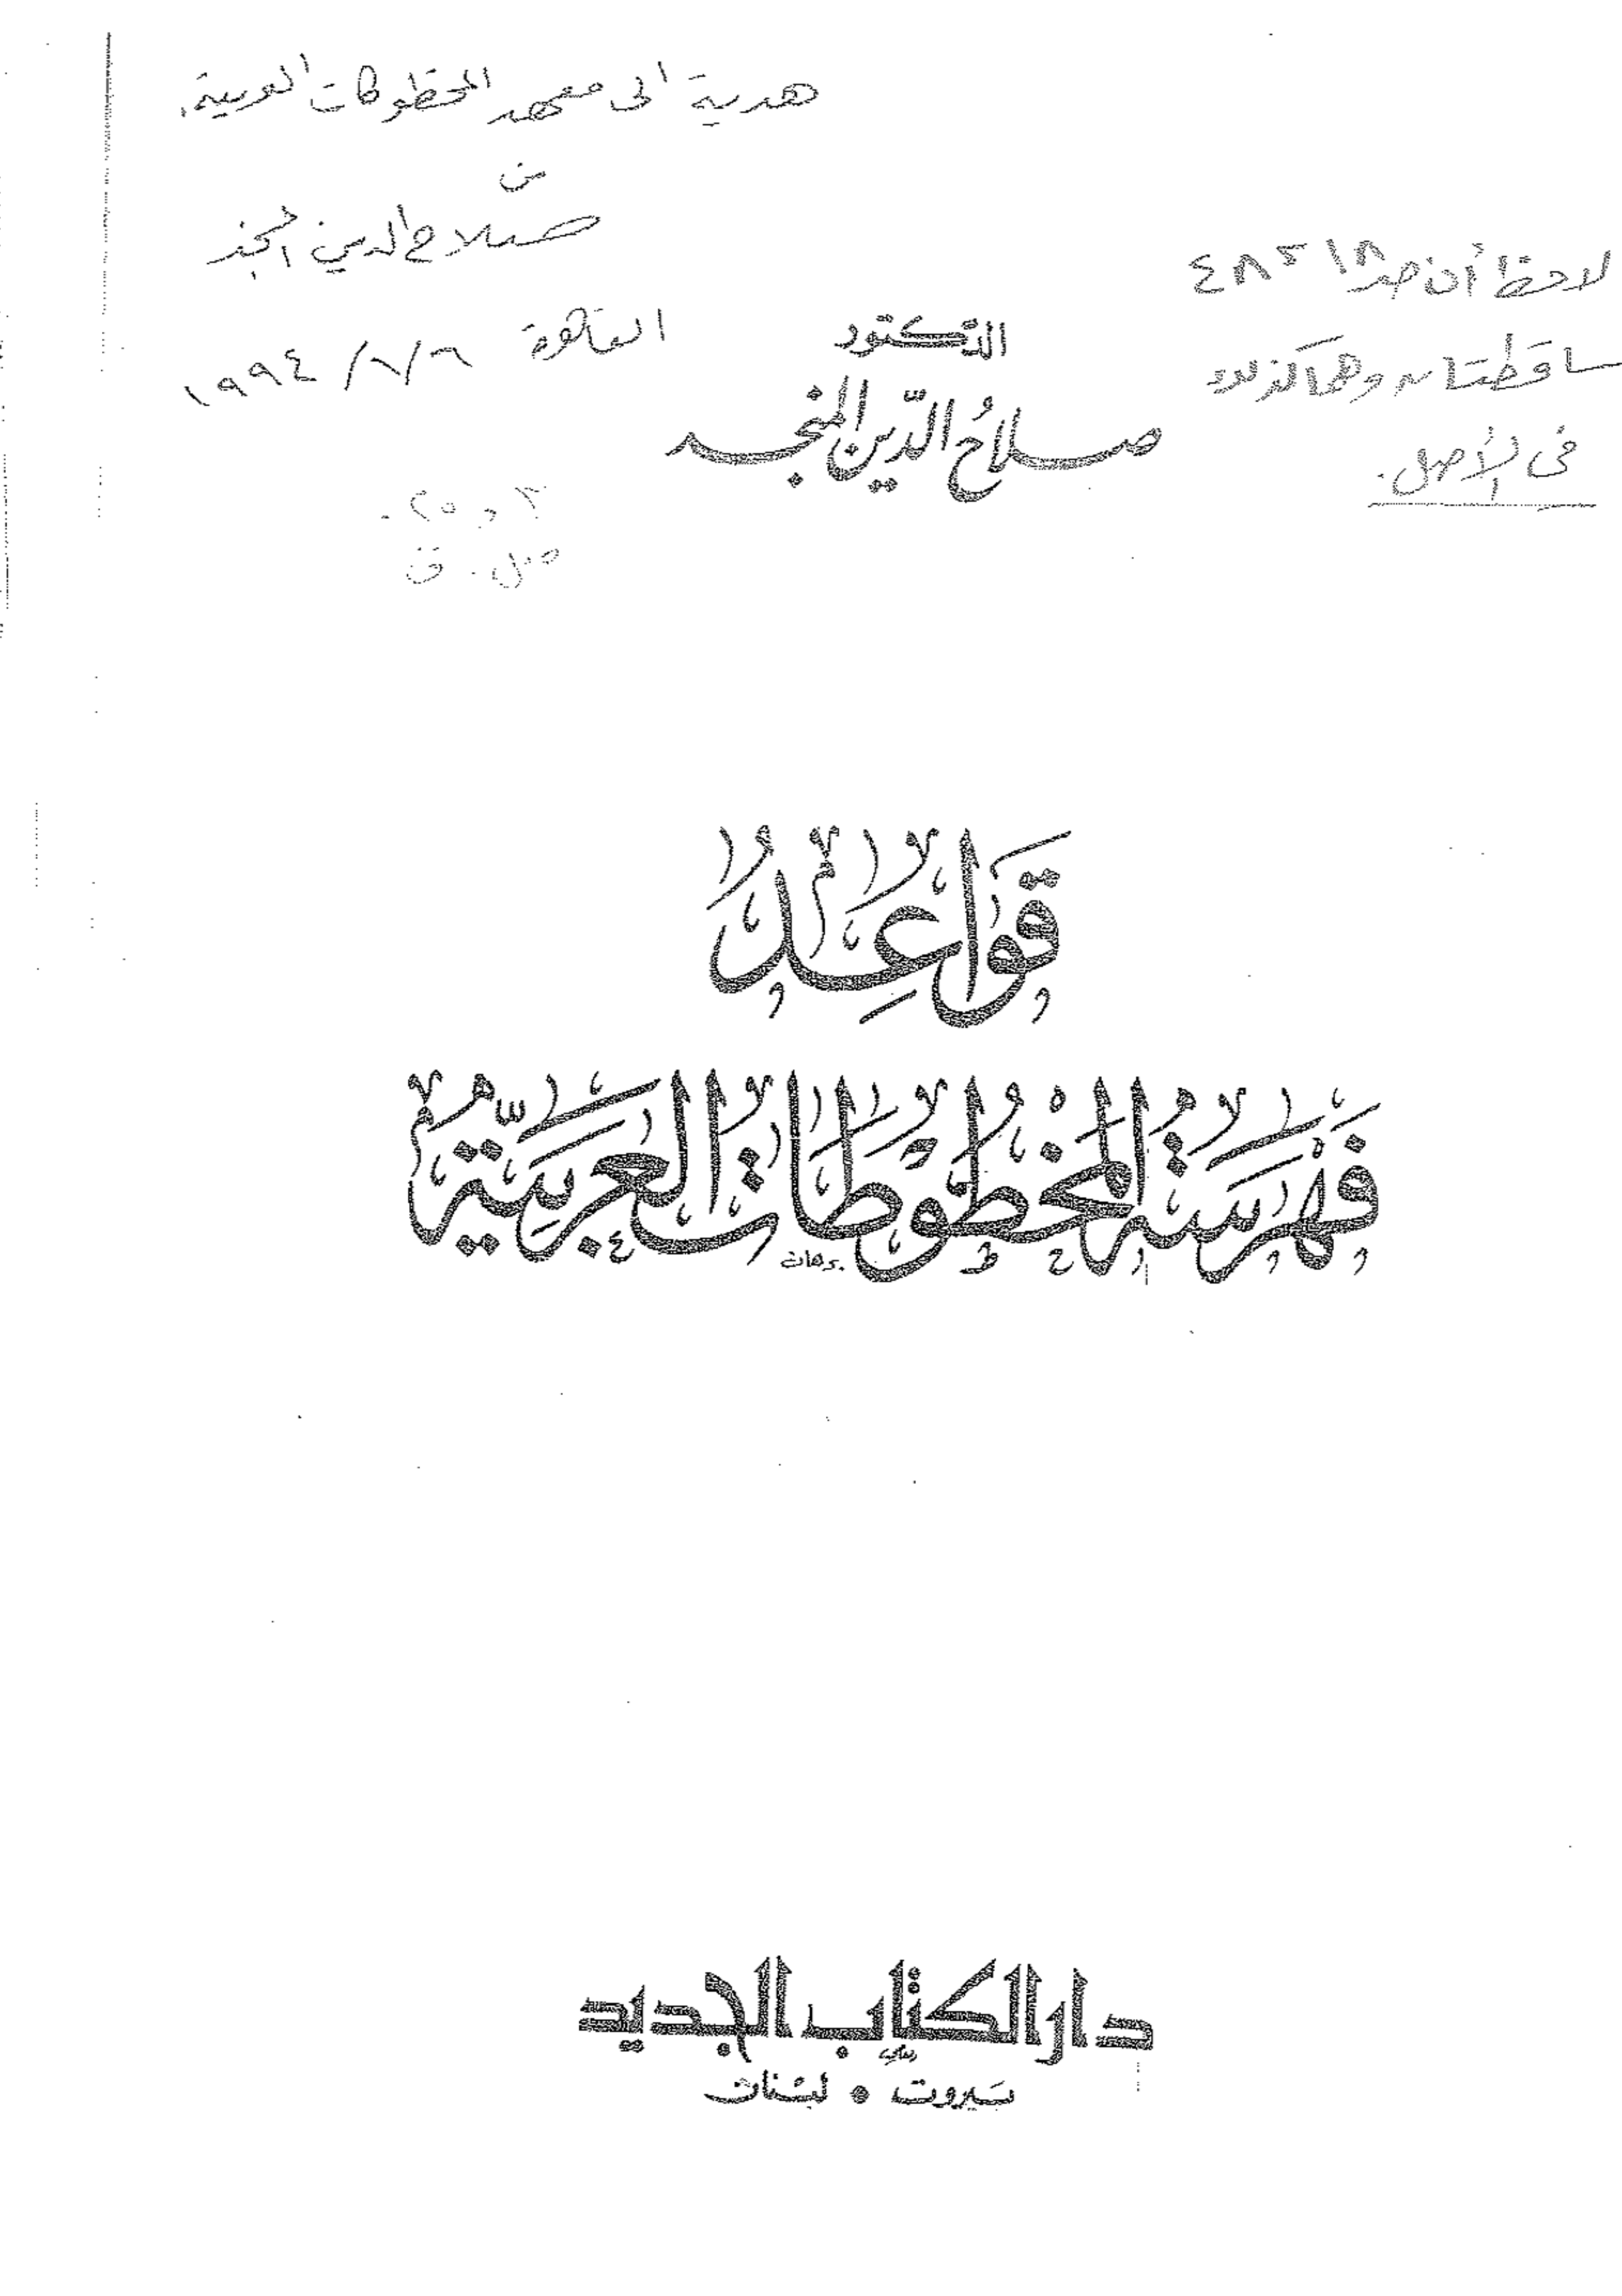 هدية الى معهد المخطوطات العربية.
من
صلاح الدين المنجد
القاهرة ١٩٩٤/٦/٦
لاحظ أن
ساقطتان وهما كذلك
في الأصل.
الدكتور
صلاح الدّين المنجد
قَواعِدُ
فَهْرَسَةِ المخطُوطَاتِ العَرَبيَّةِ
دار الكتاب الجديد
بَيروت • لبْنان